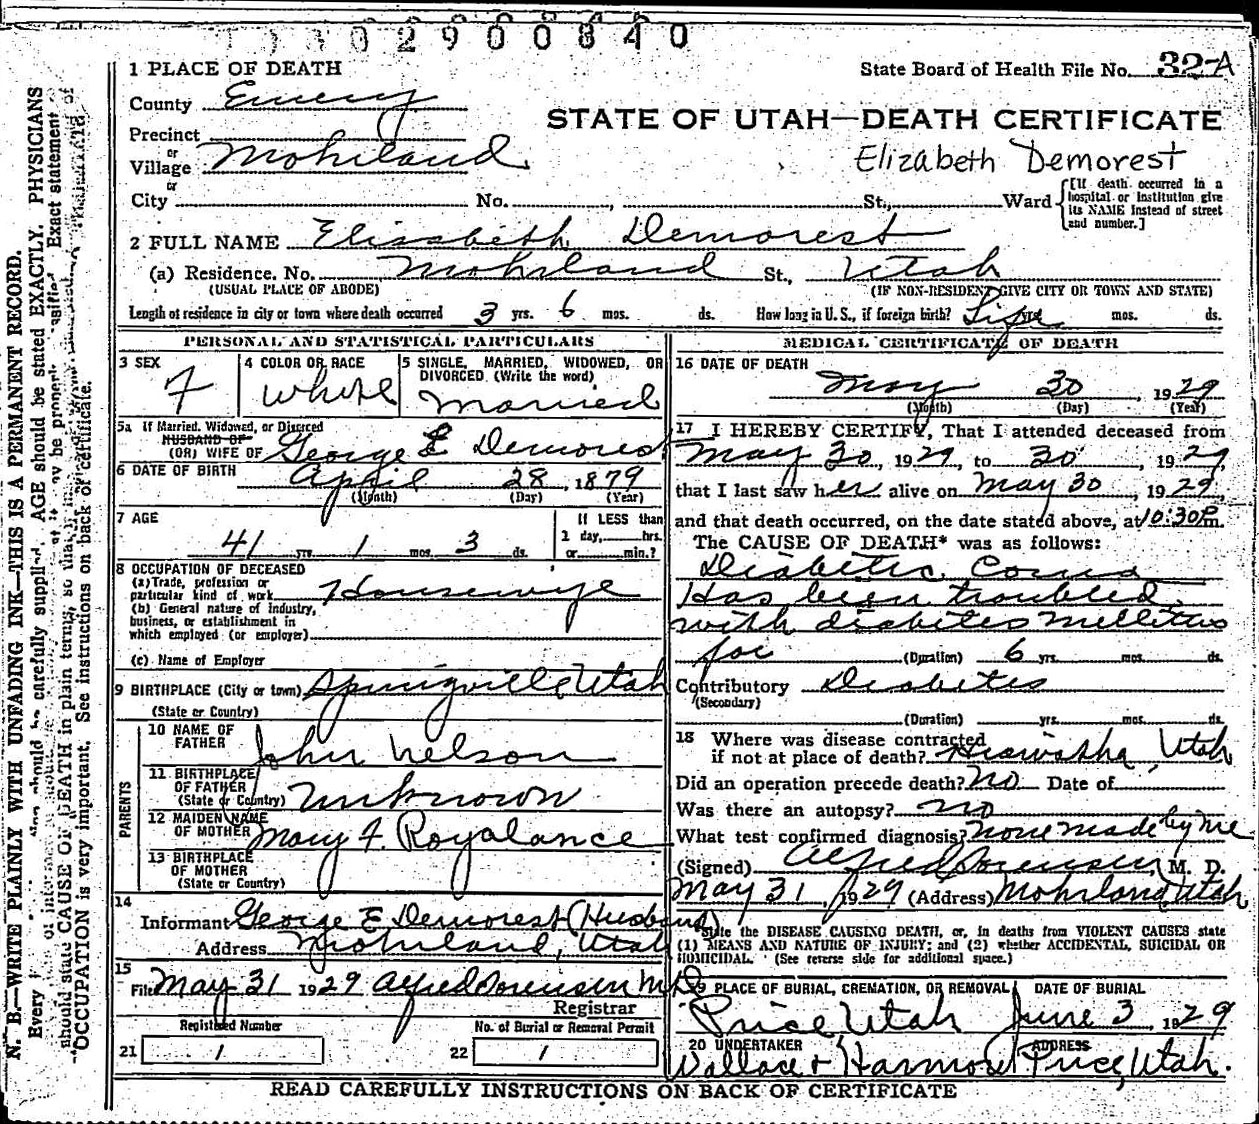 1 PLACE OF DEATH
State Board of Health File No. 32-A
County Emery
STATE OF UTAH—DEATH CERTIFICATE
Precinct
or
Village Mohrland
Elizabeth Demorest
or
City No. , St., Ward [If death occurred in a hospital or institution give its NAME instead of street and number.]
2 FULL NAME Elizabeth Demorest
(a) Residence. No. Mohrland St., Utah
(USUAL PLACE OF ABODE) (IF NON-RESIDENT GIVE CITY OR TOWN AND STATE)
Length of residence in city or town where death occurred 3 yrs. 6 mos. ds. How long in U. S., if foreign birth? Life yrs. mos. ds.
PERSONAL AND STATISTICAL PARTICULARS
3 SEX F
4 COLOR OR RACE White
5 SINGLE, MARRIED, WIDOWED, OR DIVORCED (Write the word) Married
5a If Married, Widowed, or Divorced
HUSBAND OF
(OR) WIFE OF George E Demorest
6 DATE OF BIRTH April 28, 1879
(Month) (Day) (Year)
7 AGE 41 yrs. 1 mos. 3 ds.
If LESS than 1 day, hrs. or min.?
8 OCCUPATION OF DECEASED
(a) Trade, profession or particular kind of work Housewife
(b) General nature of industry, business, or establishment in which employed (or employer)
(c) Name of Employer
9 BIRTHPLACE (City or town) Springville Utah
(State or Country)
PARENTS
10 NAME OF FATHER John Nelson
11 BIRTHPLACE OF FATHER (State or Country) Unknown
12 MAIDEN NAME OF MOTHER Mary F. Royalance
13 BIRTHPLACE OF MOTHER (State or Country)
14 Informant George E Demorest (Husband)
Address Mohrland, Utah
15 Filed May 31 1929 Alfred Sorensen M.D.
Registrar
Registered Number
21 1
No. of Burial or Removal Permit
22 1
MEDICAL CERTIFICATE OF DEATH
16 DATE OF DEATH
May 30, 1929
(Month) (Day) (Year)
17 I HEREBY CERTIFY, That I attended deceased from
May 30, 1929, to 30, 1929,
that I last saw her alive on May 30, 1929,
and that death occurred, on the date stated above, at 10:30 P.m.
The CAUSE OF DEATH* was as follows:
Diabetic Coma
Has been troubled
with diabetes mellitus
for (Duration) 6 yrs. mos. ds.
Contributory Diabetes
(Secondary)
(Duration) yrs. mos. ds.
18 Where was disease contracted
if not at place of death? Hiawatha, Utah
Did an operation precede death? no Date of
Was there an autopsy? no
What test confirmed diagnosis? none made by me
(Signed) Alfred Sorensen, M. D.
May 31, 1929 (Address) Mohrland, Utah
*State the DISEASE CAUSING DEATH, or, in deaths from VIOLENT CAUSES state
(1) MEANS AND NATURE OF INJURY; and (2) whether ACCIDENTAL, SUICIDAL OR
HOMICIDAL. (See reverse side for additional space.)
19 PLACE OF BURIAL, CREMATION, OR REMOVAL DATE OF BURIAL
Price, Utah June 3, 1929
20 UNDERTAKER ADDRESS
Wallace & Harmon Price, Utah.
READ CAREFULLY INSTRUCTIONS ON BACK OF CERTIFICATE
N. B.—WRITE PLAINLY WITH UNFADING INK—THIS IS A PERMANENT RECORD.
should be carefully supplied. AGE should be stated EXACTLY. PHYSICIANS
should state CAUSE OF DEATH in plain terms, so that it may be properly classified. Exact statement of
OCCUPATION is very important. See instructions on back of certificate.